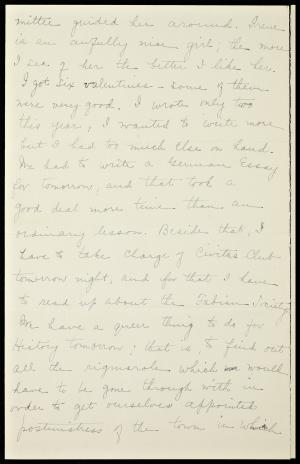 mittee guided her around. Irene
is an awfully nice girl; the more
I see of her the better I like her.
I got six valentines - some of them
were very good. I wrote only two
this year; I wanted to write more
but I had too much else on hand.
We had to write a German Essay
for tomorrow, and that took a
good deal more time than an
ordinary lesson. Beside that, I
have to take charge of Civitas Club
tomorrow night, and for that I have
to read up about the Fabian Society.
We have a queer thing to do for
History tomorrow; that is, to find out
all the rigmarole which we would
have to be gone through with in
order to get ourselves appointed
postmistress of the town in which